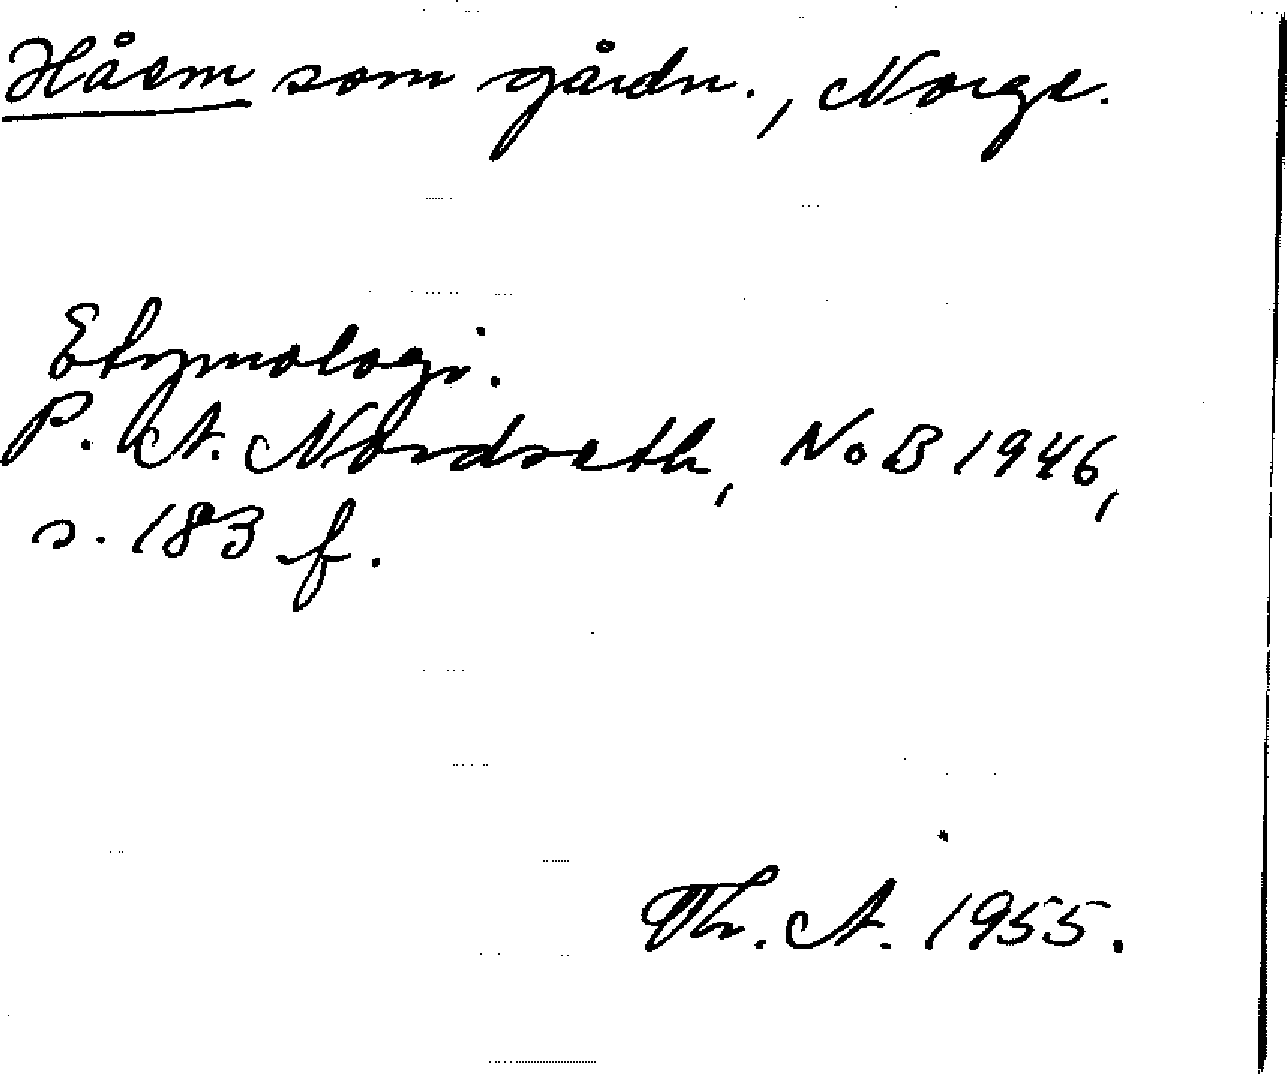 Håem som gårdn., Norge.
Etymologi.
P. A. Nordseth, NoB 1946,
s. 183 f.
Th. A. 1955.